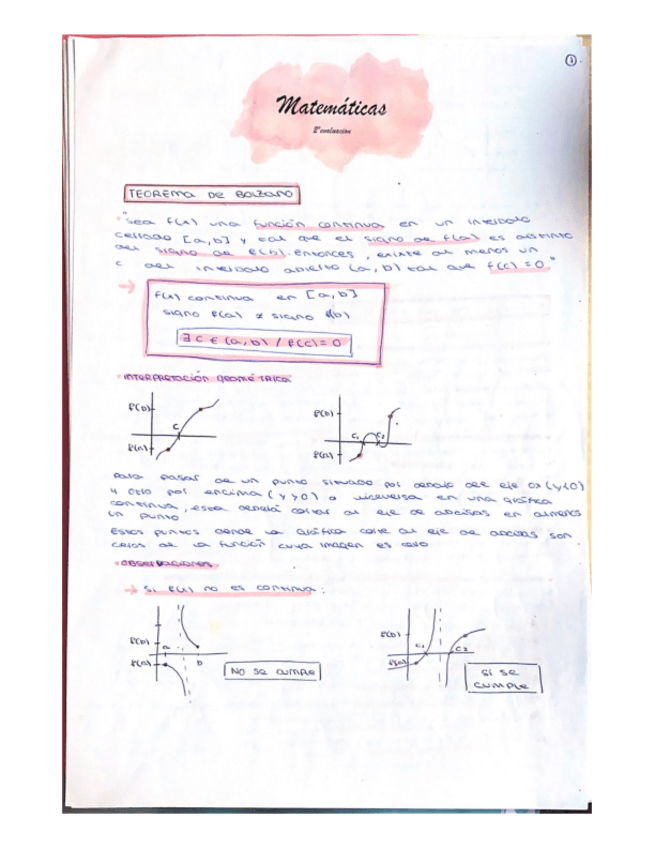 1
Matemáticas
2ª evaluacion
TEOREMA DE BOLZANO
"Sea f(x) una función continua en un intervalo
cerrado [a,b] y tal que el signo de f(a) es distinto
del signo de f(b). Entonces, existe al menos un
c del intervalo abierto (a,b) tal que f(c)=0."
→ f(x) continua en [a,b]
signo f(a) ≠ signo f(b)
∃ c ∈ (a,b) / f(c)=0
• INTERPRETACIÓN GEOMÉTRICA
f(b) c f(a)
f(b) c₁ c₂ f(a)
Para pasar de un punto situado por debajo del eje OX (y<0)
y otro por encima (y>0) o viceversa en una gráfica
continua, esta deberá cortar al eje de abcisas en almenos
un punto.
Estos puntos donde la gráfica corte al eje de abcisas son
ceros de la función cuya imagen es cero
• OBSERVACIONES
→ Si f(x) no es continua:
f(b) a f(a) b
NO se cumple
f(b) c₁ c₂ f(a)
SÍ se
cumple